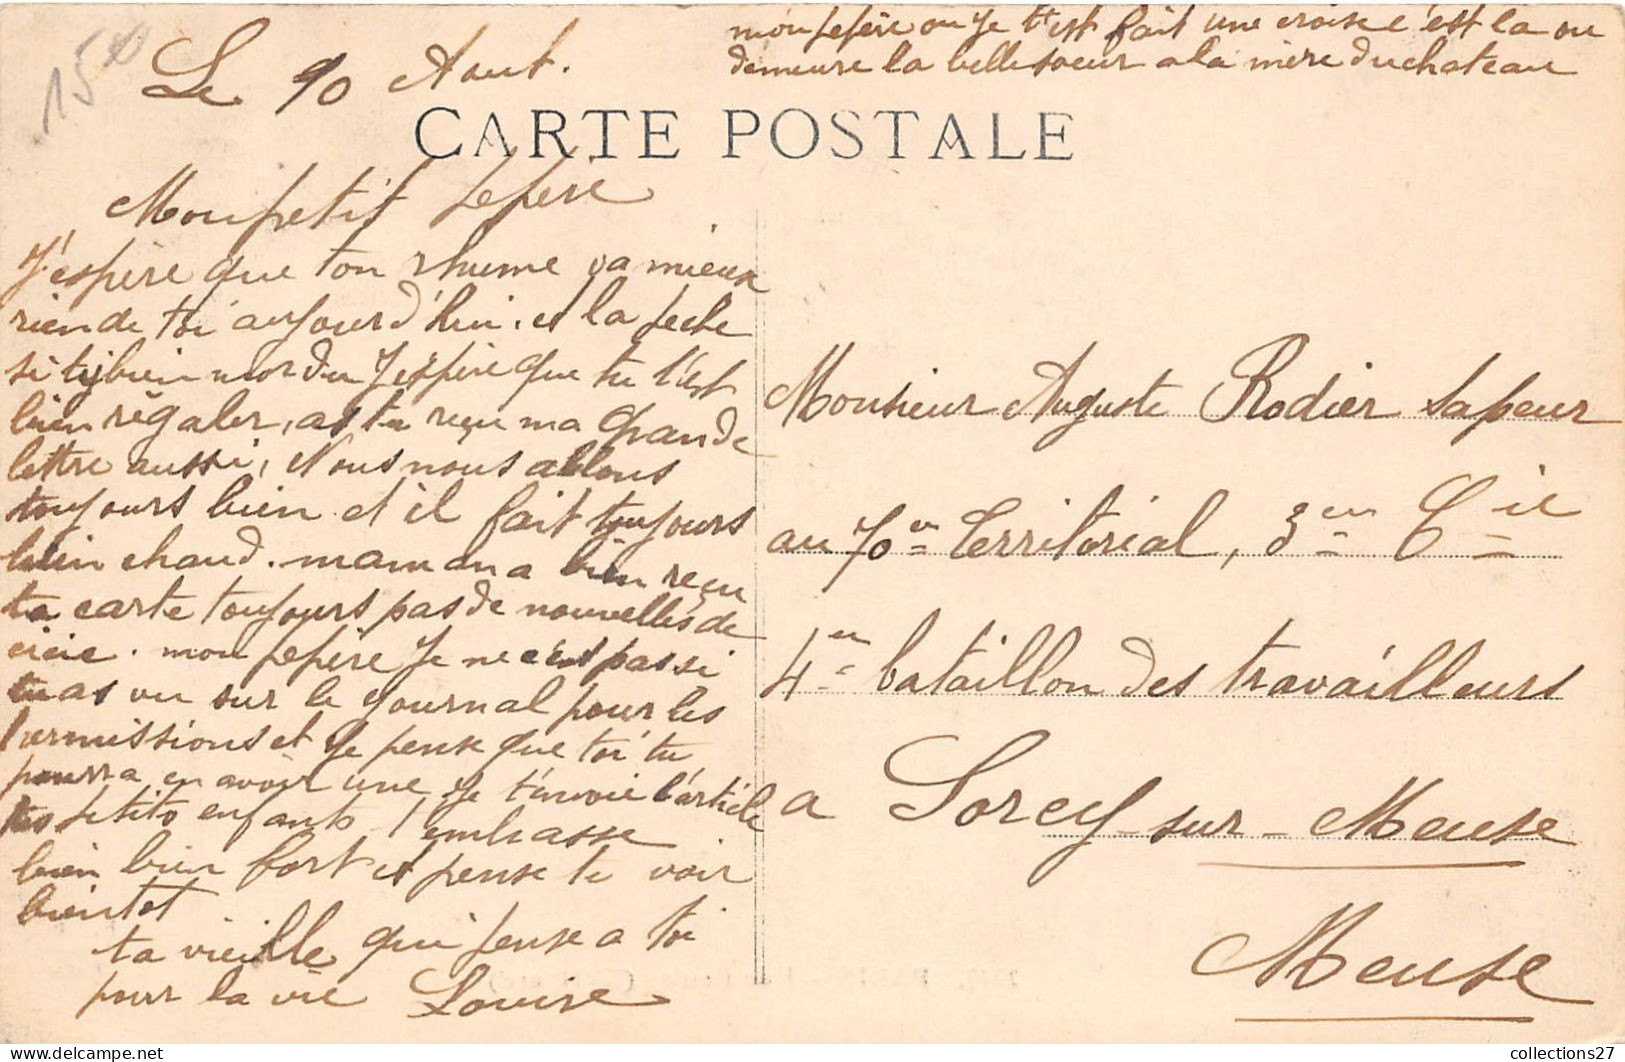 mon pepère ou je t'est fait une croise c'est la ou
demeure la belle soeur a la mère du chateau
15 00
Le 10 Aout.
CARTE POSTALE
Mon petit pepere
J'espère que ton rhume va mieux
rien de toi aujourd'hui. et la peche
si tybien mordu J'espère que tu t'est
bien régaler, as tu reçu ma grande
lettre aussi, Nous nous allons
toujours bien et il fait toujours
bien chaud. maman a bien reçu
ta carte toujours pas de nouvelles de
mon pepère Je ne c'est pas si
tu as vu sur le journal pour les
permissions et je pense que toi tu
pourra en avoir une je t'envoie l'article
tes petits enfants t'embrasse
bien bien fort et pense te voir
bientot
ta vieille qui pense a toi
pour la vie Louise
Monsieur Auguste Rodier Sapeur
au 70em Territorial, 3em Cie
4em bataillon des travailleurs
a Sorcy-sur-Meuse
Meuse
collections27